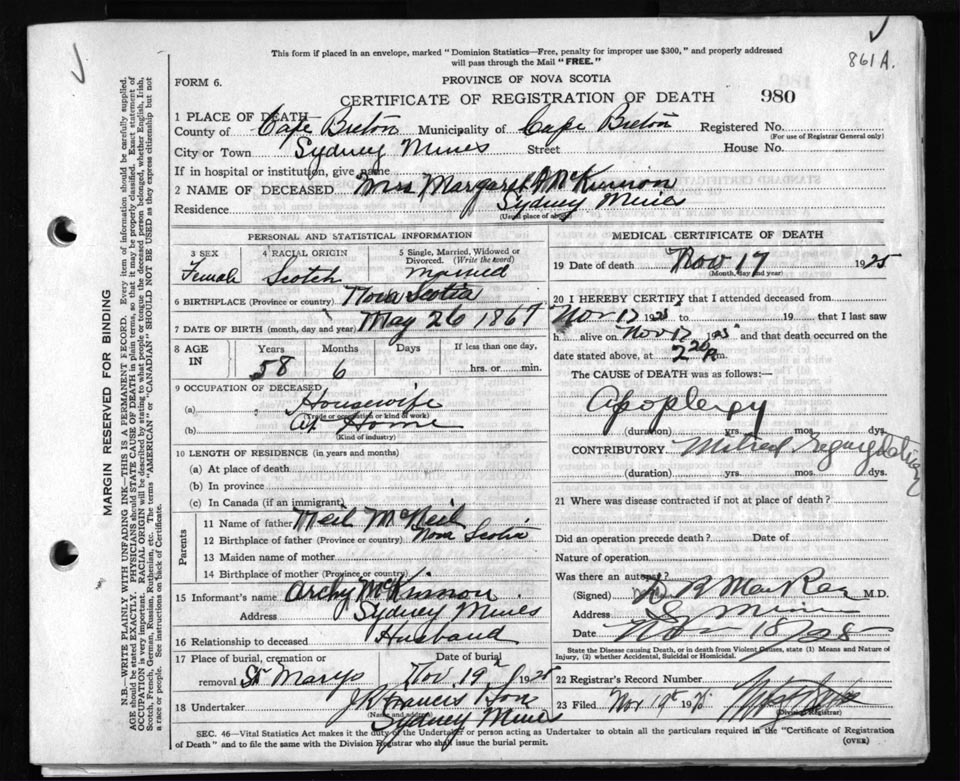 861A.
This form if placed in an envelope, marked "Dominion Statistics—Free, penalty for improper use $300," and properly addressed
will pass through the Mail "FREE."
FORM 6.
PROVINCE OF NOVA SCOTIA
CERTIFICATE OF REGISTRATION OF DEATH 980
MARGIN RESERVED FOR BINDING
N.B.—WRITE PLAINLY WITH UNFADING INK—THIS IS A PERMANENT RECORD. Every item of information should be carefully supplied.
AGE should be stated EXACTLY. PHYSICIANS should STATE CAUSE OF DEATH in plain terms, so that it may be properly classified. Exact statement of
OCCUPATION is very important. RACIAL ORIGIN will be described by stating to what people or tongue the deceased person belonged, whether English, Irish,
Scotch, French, German, Russian, Ruthenian, etc. The terms "AMERICAN" or "CANADIAN" SHOULD NOT BE USED as they express citizenship but not
a race or people. See instructions on back of Certificate.
1 PLACE OF DEATH—
County of Cape Breton Municipality of Cape Breton Registered No.
(For use of Registrar General only)
City or Town Sydney Mines Street House No.
If in hospital or institution, give name
2 NAME OF DECEASED Mrs Margaret A McKinnon
Residence Sydney Mines
(Usual place of abode)
PERSONAL AND STATISTICAL INFORMATION
3 SEX Female
4 RACIAL ORIGIN Scotch
5 Single, Married, Widowed or Divorced. (Write the word) married
6 BIRTHPLACE (Province or country) Nova Scotia
7 DATE OF BIRTH (month, day and year) May 26 1867
8 AGE IN Years 58 Months 6 Days If less than one day, hrs. or min.
9 OCCUPATION OF DECEASED
(a) Housewife
(Trade or occupation or kind of work)
(b) At Home
(Kind of industry)
10 LENGTH OF RESIDENCE (in years and months)
(a) At place of death
(b) In province
(c) In Canada (if an immigrant)
Parents
11 Name of father Neil McNeil
12 Birthplace of father (Province or country) Nova Scotia
13 Maiden name of mother
14 Birthplace of mother (Province or country)
15 Informant's name Archy McKinnon
Address Sydney Mines
16 Relationship to deceased Husband
17 Place of burial, cremation or Date of burial
removal St Marys Nov 19th 1925
18 Undertaker J R Francis & Son
(Name and address)
Sydney Mines
MEDICAL CERTIFICATE OF DEATH
19 Date of death Nov 17 1925
(Month, day and year)
20 I HEREBY CERTIFY that I attended deceased from
Nov 17 1925 to 19 that I last saw
h alive on Nov 17 1925 and that death occurred on
date stated above, at 2 20 P m.
The CAUSE of DEATH was as follows:—
Apoplexy
(duration) yrs. mos. dys.
CONTRIBUTORY Mitral Regurgitation
(duration) yrs. mos. dys.
21 Where was disease contracted if not at place of death?
Did an operation precede death? Date of
Nature of operation
Was there an autopsy?
(Signed) MacRae M.D.
Address S. Mines
Date Nov 18/25
State the Disease causing Death, or in death from Violent Causes, state (1) Means and Nature of
Injury, (2) whether Accidental, Suicidal or Homicidal.
22 Registrar's Record Number
23 Filed Nov 19th
(Division Registrar)
SEC. 46—Vital Statistics Act makes it the duty of the Undertaker or person acting as Undertaker to obtain all the particulars required in the "Certificate of Registration
of Death" and to file the same with the Division Registrar who shall issue the burial permit. (OVER)